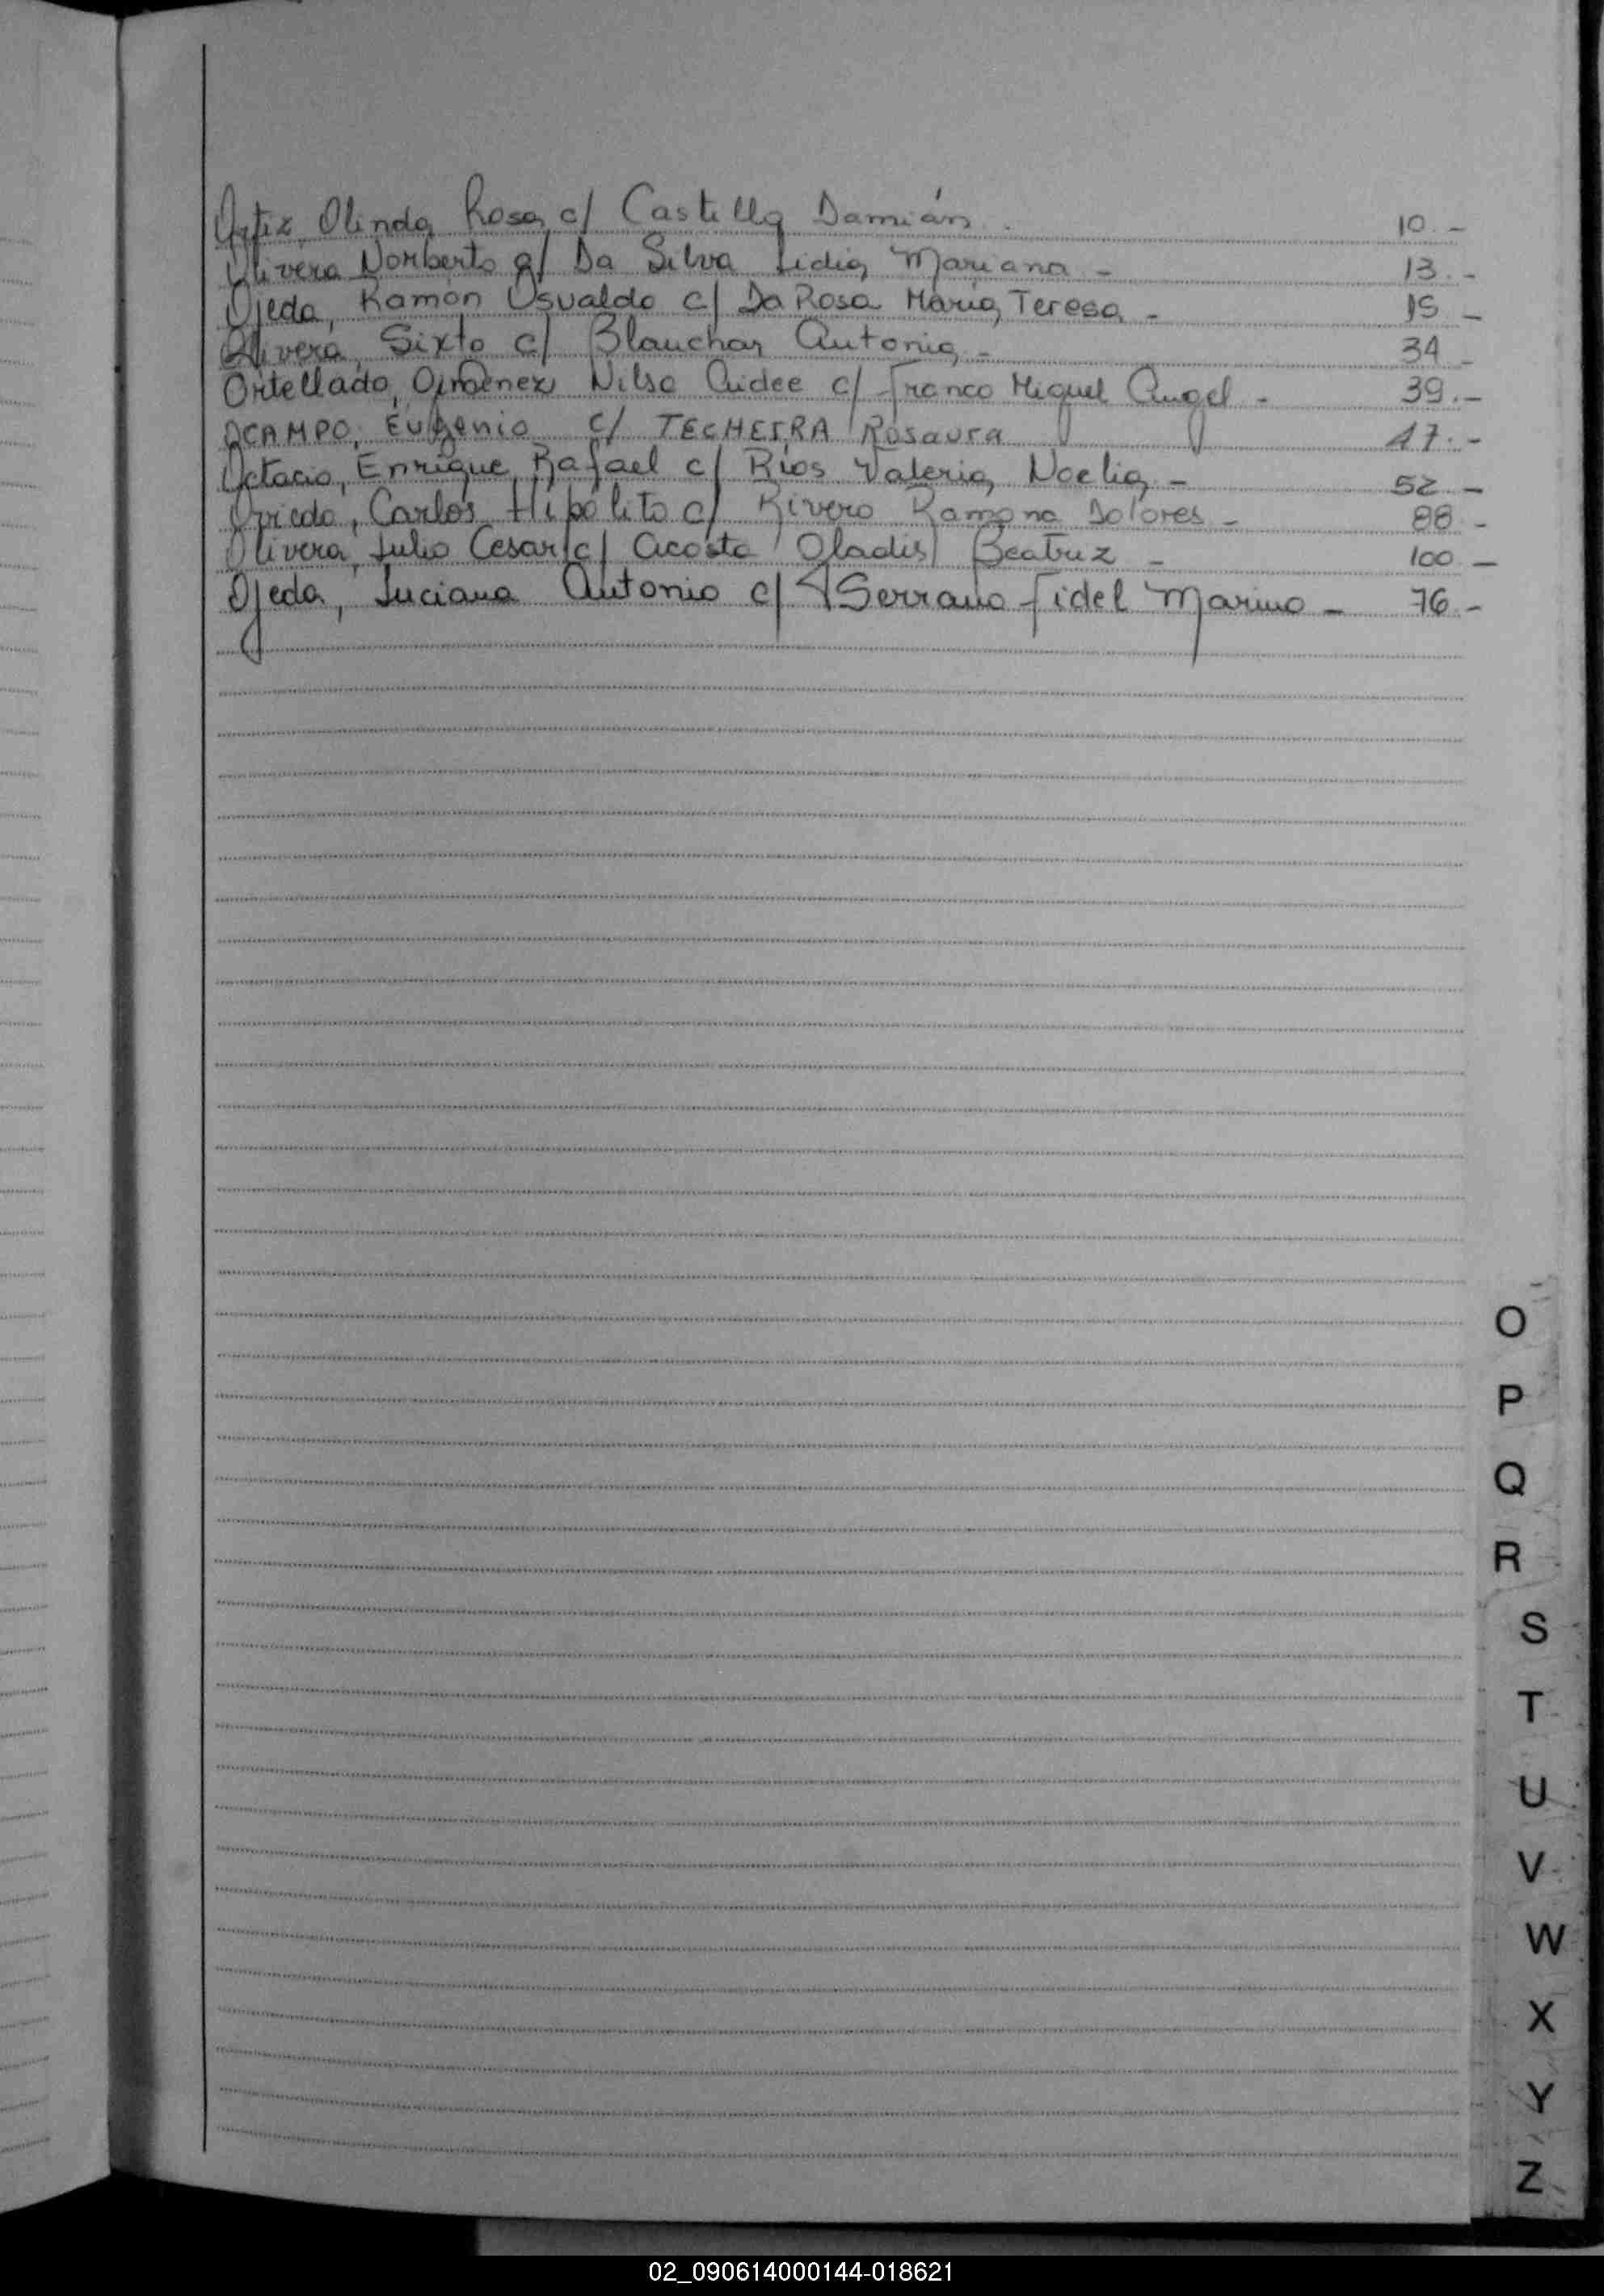 Ortiz, Olinda Rosa c/ Castilla Damián. 10.-
Olivera Norberto c/ Da Silva Lidia Mariana - 13.-
Ojeda, Ramón Osvaldo c/ Da Rosa María Teresa - 15.-
Olivera, Sixto c/ Blauchar Antonia - 34.-
Ortellado, Gimenez Nilsa Aidee c/ Franco Miguel Angel - 39.-
OCAMPO, Eugenio c/ TECHEIRA Rosaura 47.-
Octacio, Enrique Rafael c/ Ríos Valeria Noelia - 52.-
Oviedo, Carlos Hipólito c/ Rivero Ramona Dolores - 88.-
Olivera, Julio Cesar c/ Acosta Gladis Beatriz - 100.-
Ojeda, Luciana Antonio c/ Serrano Fidel Marino - 76.-
O
P
Q
R
S
T
U
V
W
X
Y
Z
02_090614000144-018621